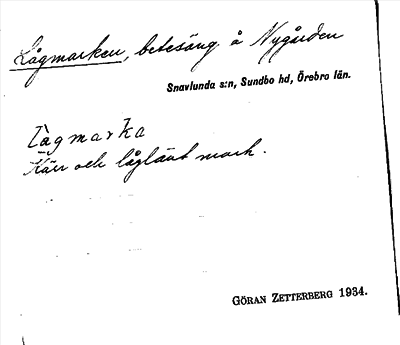 Lågmarken, betesäng å Nygården
Snavlunda s:n, Sundbo hd, Örebro län.
Lågmarka
Kärr och låglänt mark.
GÖRAN ZETTERBERG 1934.